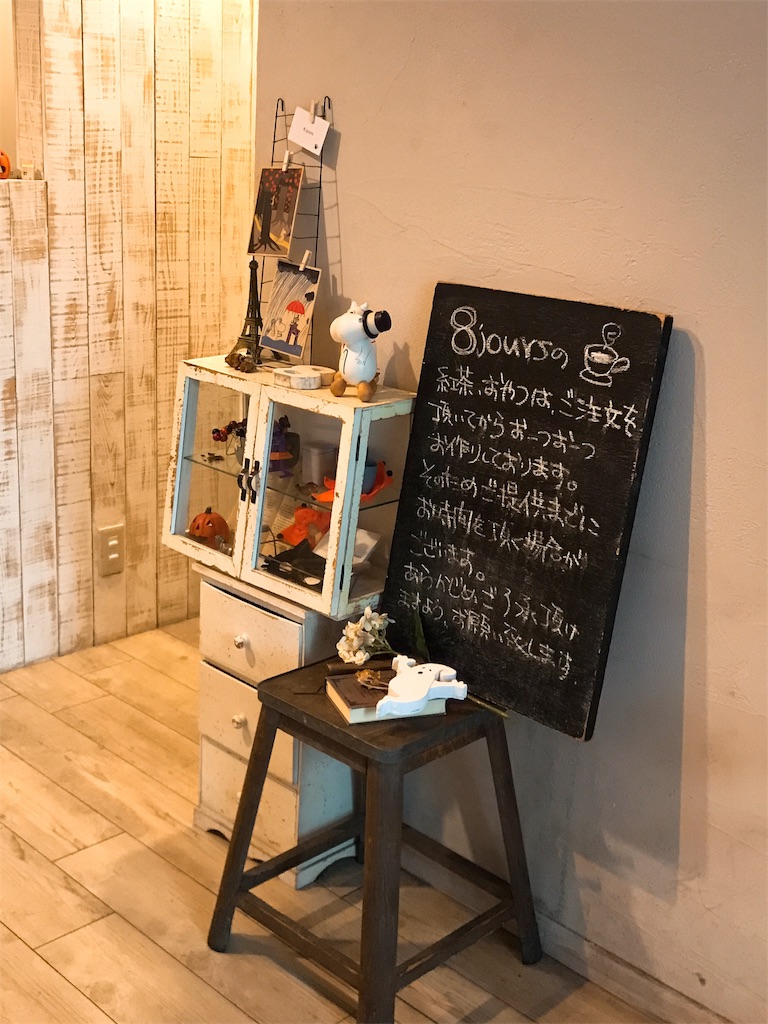 8joursの
紅茶、おやつは、ご注文を
頂いてから お一つお一つ
お作りしております。
そのためご提供までに
お時間を頂く場合が
ございます。
あらかじめご了承頂け
ますよう、お願い致します。